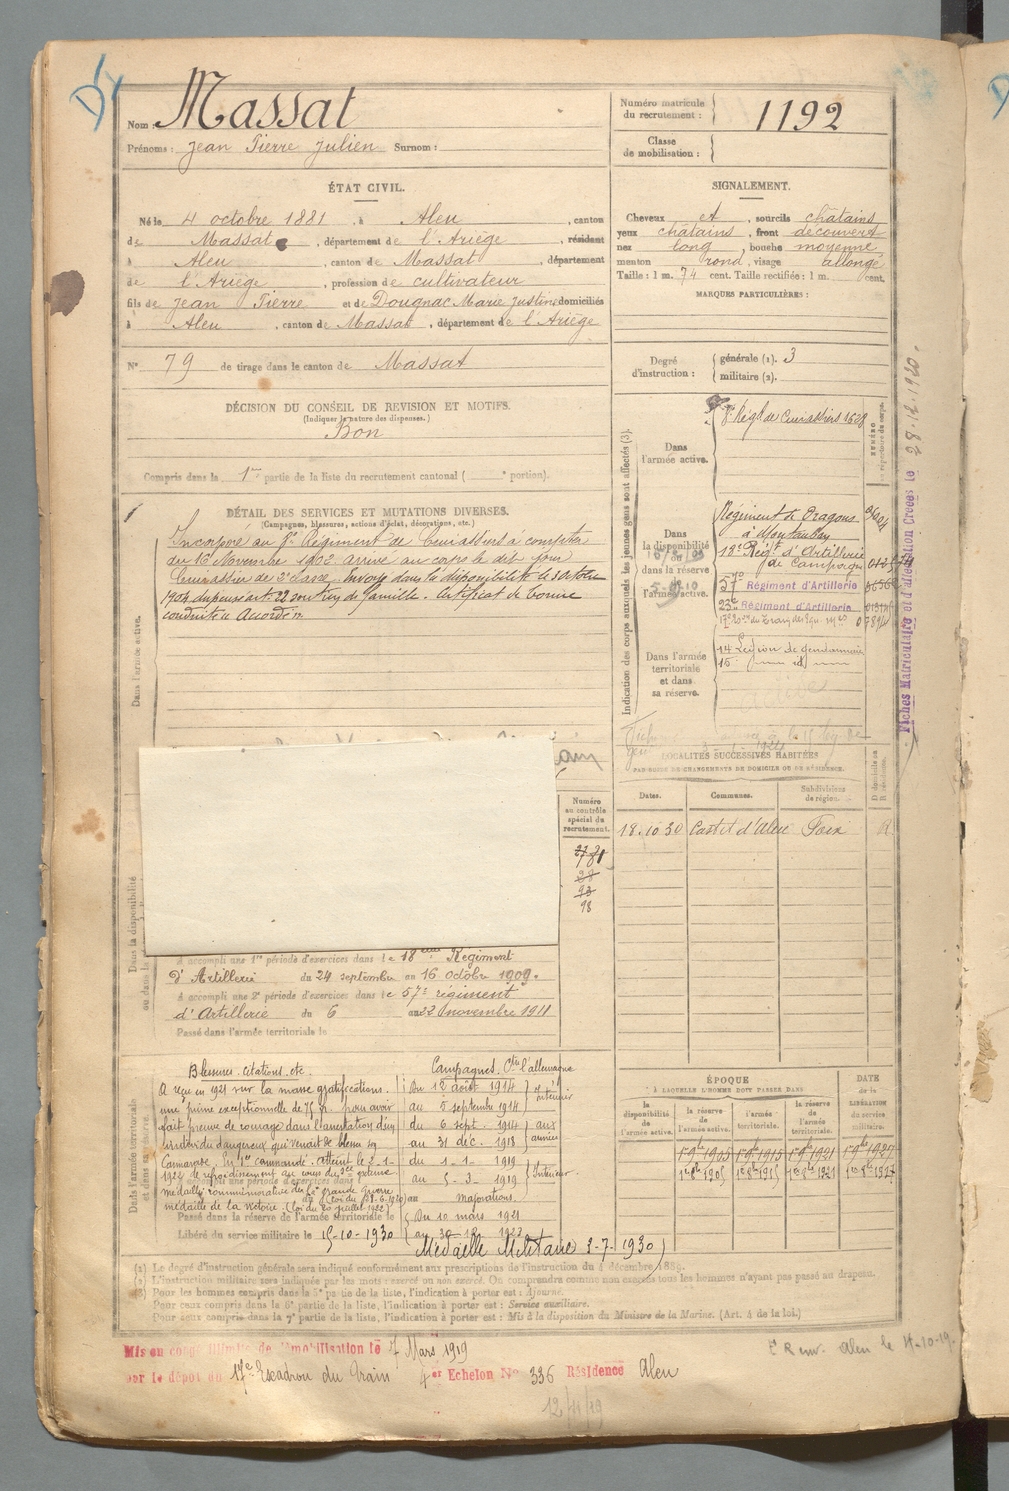 Nom : Massat
Prénoms : Jean Pierre Julien Surnom :
Numéro matricule du recrutement : 1192
Classe de mobilisation :
ÉTAT CIVIL.
Né le 4 octobre 1881, à Aleu, canton
de Massat, département de l'Ariège, résidant
à Aleu, canton de Massat, département
de l'Ariège, profession de cultivateur
fils de Jean Pierre et de Dougnac Marie Justine domiciliés
à Aleu, canton de Massat, département de l'Ariège
N° 79 de tirage dans le canton de Massat
SIGNALEMENT.
Cheveux et, sourcils châtains
yeux châtains, front découvert
nez long, bouche moyenne
menton rond, visage allongé
Taille : 1 m. 74 cent. Taille rectifiée : 1 m. cent.
MARQUES PARTICULIÈRES :
Degré d'instruction : générale (1). 3
militaire (2).
DÉCISION DU CONSEIL DE REVISION ET MOTIFS.
(Indiquer la nature des dispenses.)
Bon
Compris dans la 1re partie de la liste du recrutement cantonal ( e portion).
DÉTAIL DES SERVICES ET MUTATIONS DIVERSES.
(Campagnes, blessures, actions d'éclat, décorations, etc.)
Incorporé au Régiment de Cuirassiers à compter
du 16 Novembre 1902. arrivé au corps le dit jour
Cuirassier de 2e classe. Envoyé dans la disponibilité le
1904 dispensé art. 22 soutien de famille. Certificat de bonne
conduite Accordé
Dans l'armée active.
Indication des corps auxquels les jeunes gens sont affectés (3).
Dans l'armée active.
Régt de Cuirassiers
Dans la disponibilité ou dans la réserve de l'armée active.
Régiment de Dragons
à Montauban
18e Régt d'Artillerie
de Campagne
57e Régiment d'Artillerie
23e Régiment d'Artillerie
Dans l'armée territoriale et dans sa réserve.
14 Légion de gendarmerie
15
Fiches Matriculaire et d'affectation Créées le 28-12-1920.
LOCALITÉS SUCCESSIVES HABITÉES
PAR SUITE DE CHANGEMENTS DE DOMICILE OU DE RÉSIDENCE.
Dates. Communes. Subdivisions de région.
18.10.30 Castet d'Aleu Foix R
Numéro au contrôle spécial du recrutement.
98
A accompli une 1re période d'exercices dans le 18ème Régiment
d'Artillerie du 24 septembre au 16 octobre 1909.
A accompli une 2e période d'exercices dans le 57e régiment
d'Artillerie du 6 au 22 novembre 1911
Passé dans l'armée territoriale le
Blessures. citations. etc.
A reçu en 1921 sur la masse gratifications.
une prime exceptionnelle de 75 fr. pour avoir
fait preuve de courage dans l'arrestation d'un
individu dangereux qui venait de blesser son
Camarade.
médaille commémorative de la grande guerre
médaille de la Victoire. (loi du 20 juillet 1922)
Passé dans la réserve de l'armée territoriale le
Libéré du service militaire le 15-10-1930
Campagnes. Ctre l'allemagne
Du 12 août 1914
au 5 septembre 1914 intérieur
du 6 sept. 1914
au 31 déc. 1918 aux armées
du 1-1-1919
au 5-3-1919 Intérieur
majorations.
Du 10 mars 1921
Médaille Militaire 3-7-1930
ÉPOQUE
À LAQUELLE L'HOMME DOIT PASSER DANS
la disponibilité de l'armée active. la réserve de l'armée active. l'armée territoriale. la réserve de l'armée territoriale.
DATE de la LIBÉRATION du service militaire.
(1) Le degré d'instruction générale sera indiqué conformément aux prescriptions de l'instruction du 4 décembre 1889.
(2) L'instruction militaire sera indiquée par les mots : exercé ou non exercé. On comprendra comme non exercés tous les hommes n'ayant pas passé au drapeau.
(3) Pour les hommes compris dans la 5e partie de la liste, l'indication à porter est : Ajourné.
Pour ceux compris dans la 6e partie de la liste, l'indication à porter est : Service auxiliaire.
Pour ceux compris dans la 7e partie de la liste, l'indication à porter est : Mis à la disposition du Ministre de la Marine. (Art. 4 de la loi.)
Mis en congé illimité de démobilisation le 7 Mars 1919
par le dépôt du 17e Escadron du Train 4er Echelon No 336 Résidence Aleu